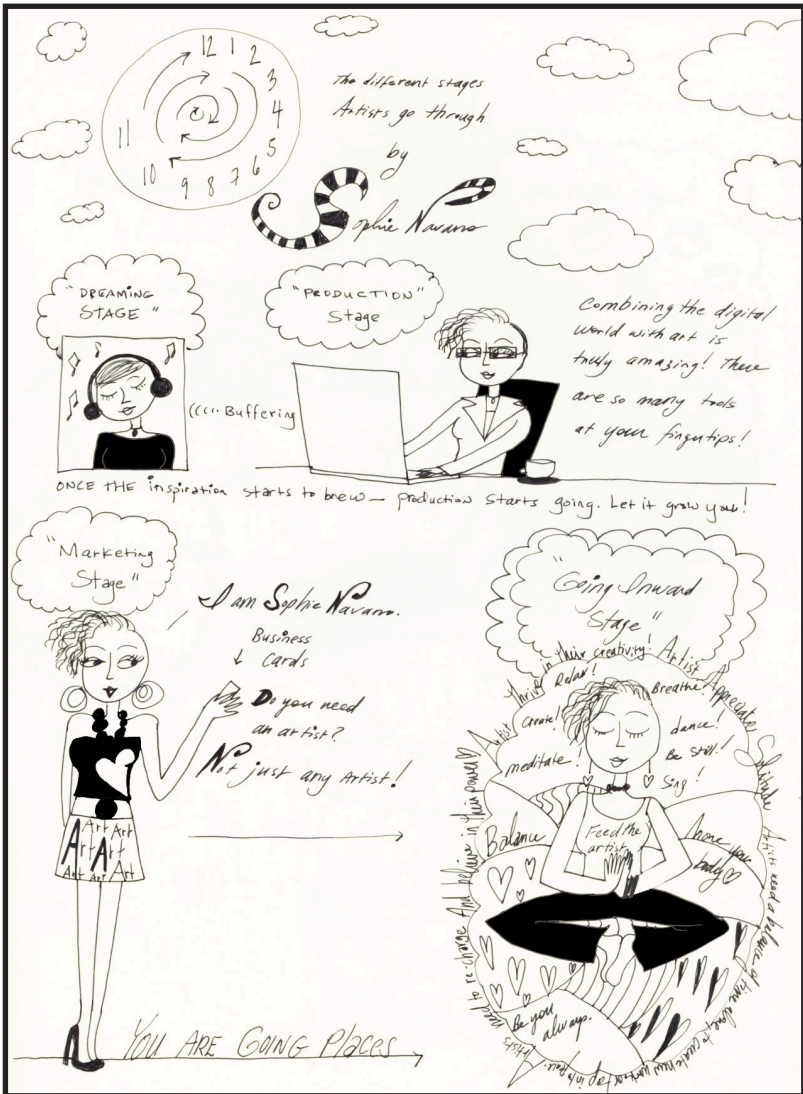 12 1 2
3
4
5
6
7
8
9
10
11
The different stages
Artists go through
by
Sophie Navarro
"DREAMING
STAGE"
"PRODUCTION"
Stage
Combining the digital
world with art is
truly amazing! There
are so many tools
at your fingertips!
((((.. Buffering
ONCE THE inspiration starts to brew — production starts going. Let it grow you!
"Marketing
Stage"
I am Sophie Navarro.
Business
↓ Cards
Do you need
an artist?
Not just any Artist!
Art Art Art
Art Art
Art Art Art
YOU ARE GOING PlAcES
"Going Inward
Stage"
Artist thrive in their creativity! Artist Appreciate Solitude
Artists need a balance of time alone, to create new work or tap into
Artists need to re-charge And believe in their power♡
Relax!
Breathe!
Create!
dance!
meditate!
Be Still!
Sing!
Balance
Feed the
artist
hone your
body♡
Be you
always.